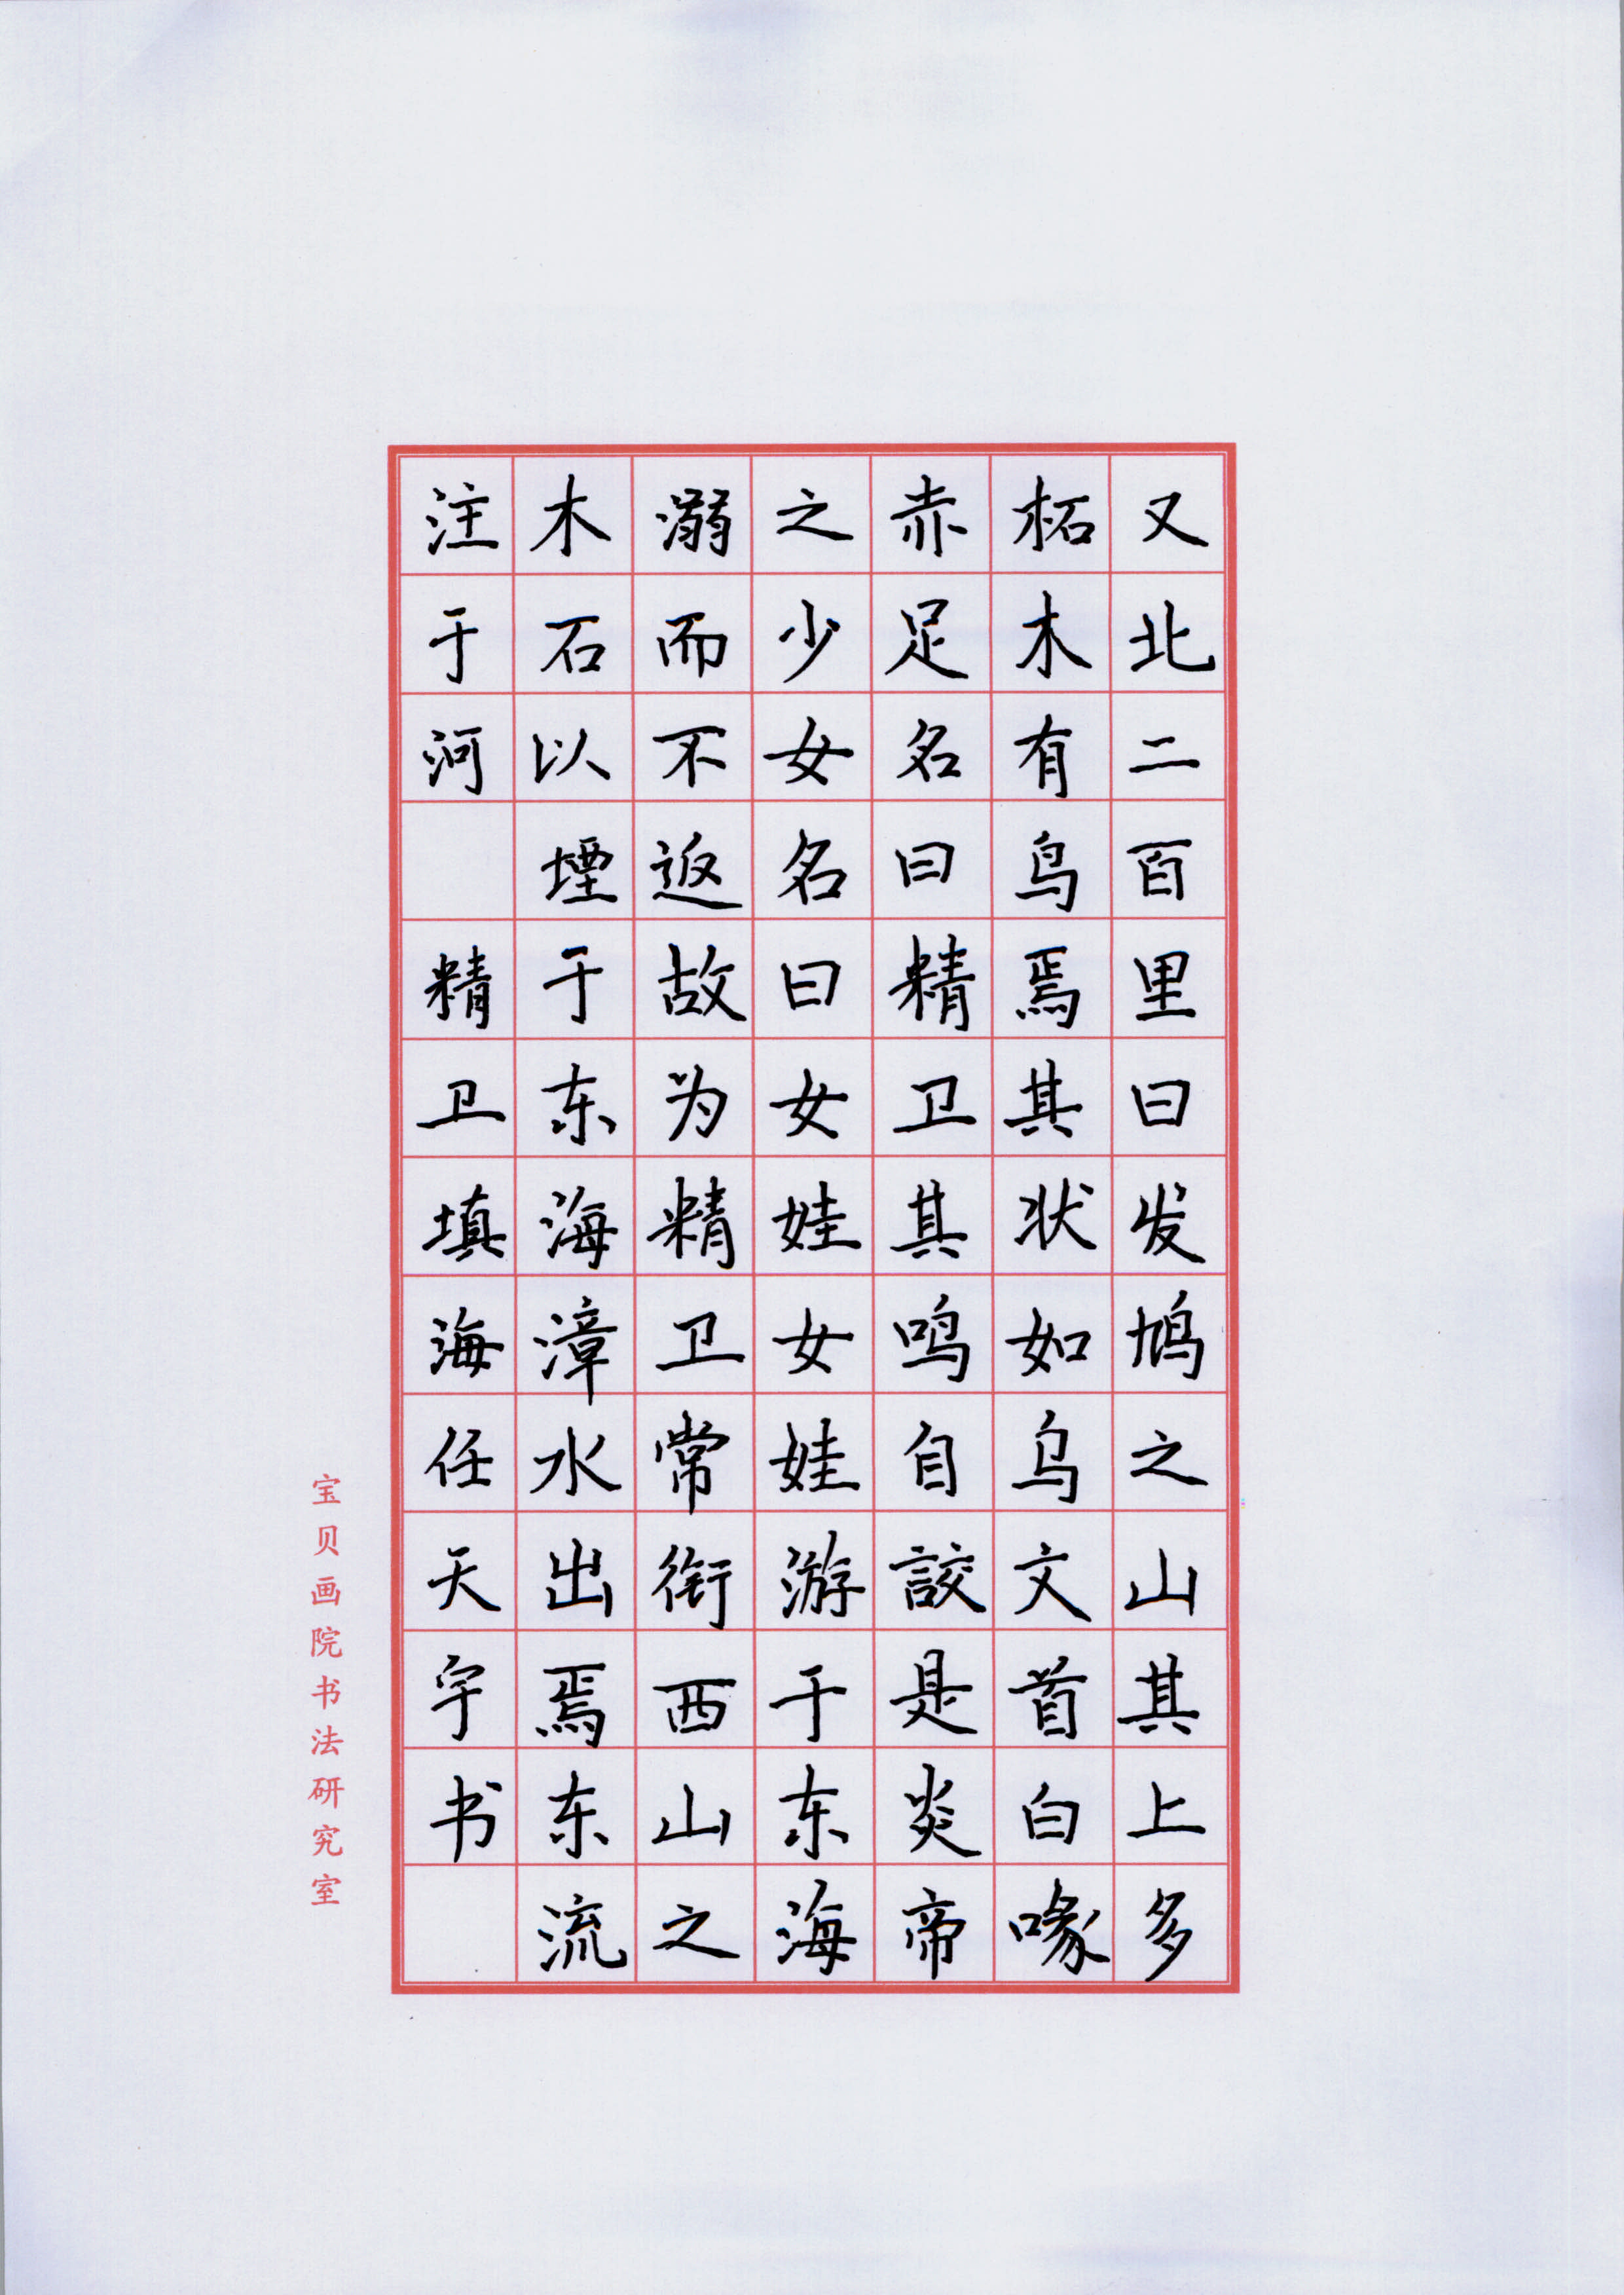 又北二百里曰发鸠之山其上多
柘木有鸟焉其状如乌文首白喙
赤足名曰精卫其鸣自詨是炎帝
之少女名曰女娃女娃游于东海
溺而不返故为精卫常衔西山之
木石以堙于东海漳水出焉东流
注于河 精卫填海任天宇书
宝贝画院书法研究室